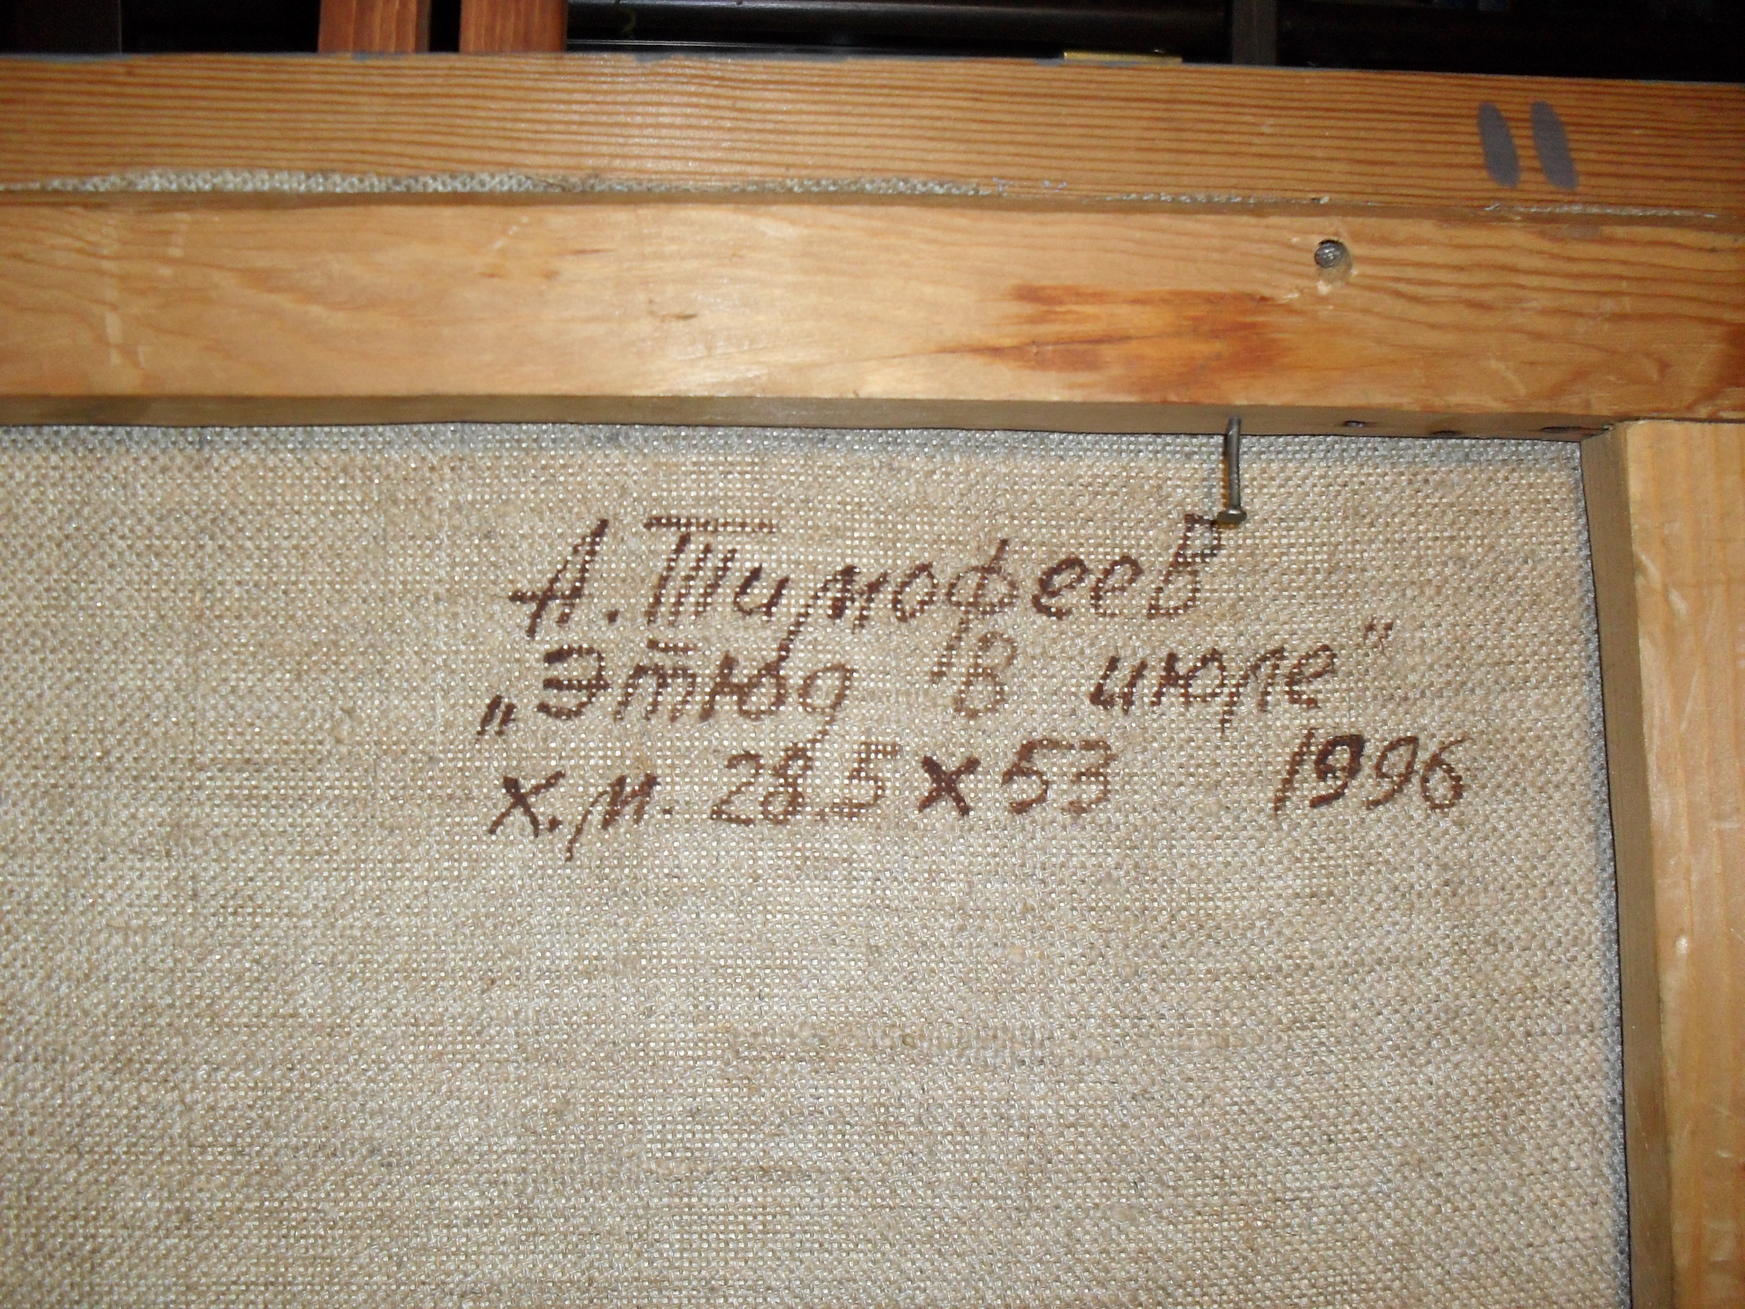 А. Тимофеев
„Этюд в июле“
х.м. 28.5 х 53 1996